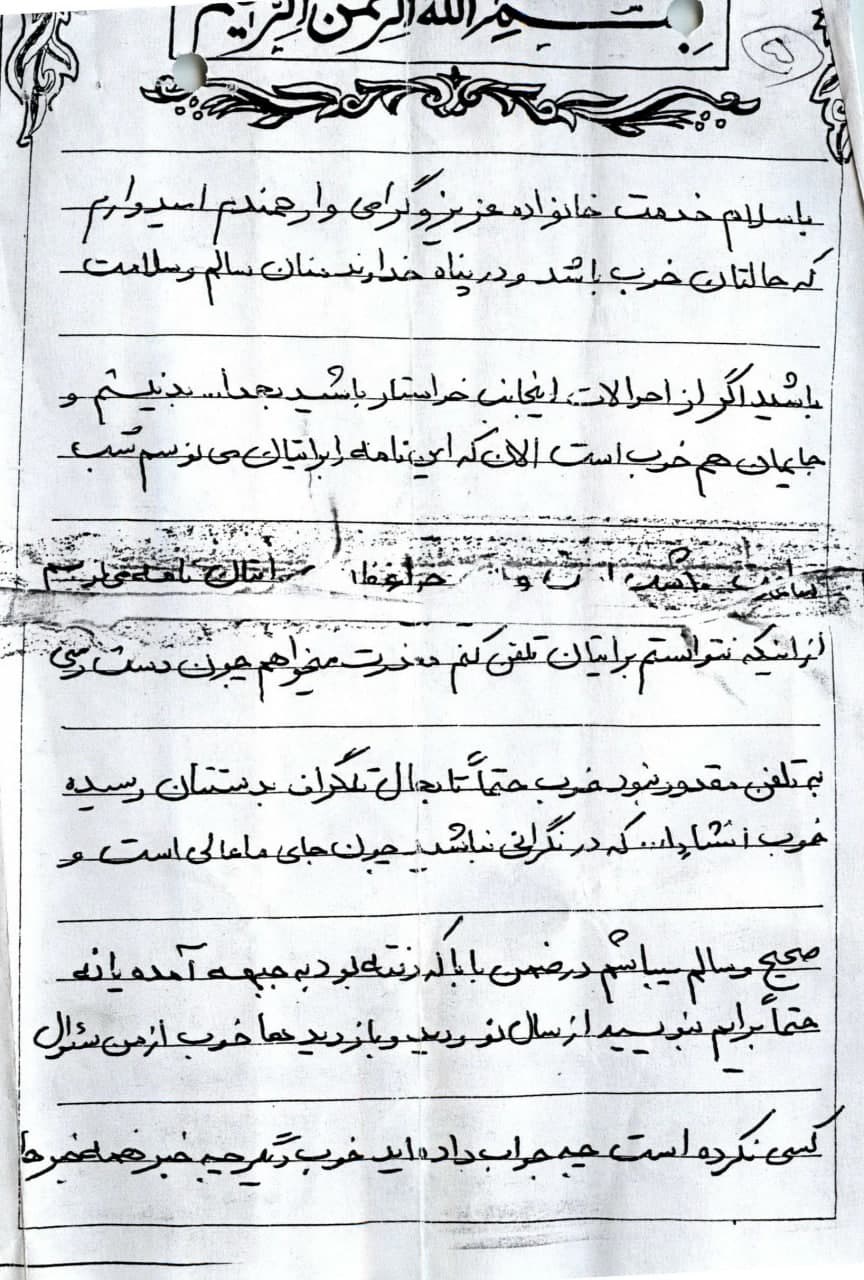 بسم الله الرحمن الرحیم
۵
باسلام خدمت خانواده عزیز و گرامی و ارجمندم امیدوارم
که حالتان خوب باشد و در پناه خداوند منان سالم و سلامت
باشید اگر از احوالات اینجانب خواستار باشید بحمدا... بد نیستم و
جایمان هم خوب است الان که این نامه را برایتان می نویسم شب
نامه می نویسم
از اینکه نتوانستم برایتان تلفن کنم معذرت میخواهم چون دست رسی
به تلفن مقدور نبود خوب حتماً تا بحال تلگراف بدستتان رسیده
خوب انشاءا... که در نگرانی نباشید چون جای ما عالی است و
صحیح و سالم میباشم در ضمن بابا که رفته بود به جبهه آمده یا نه
حتماً برایم بنویسید از سال نو و دید و بازدید ها خوب از من سئوال
کسی نکرده است چه جواب داده اید خوب دیگر چه خبر همه خبرها